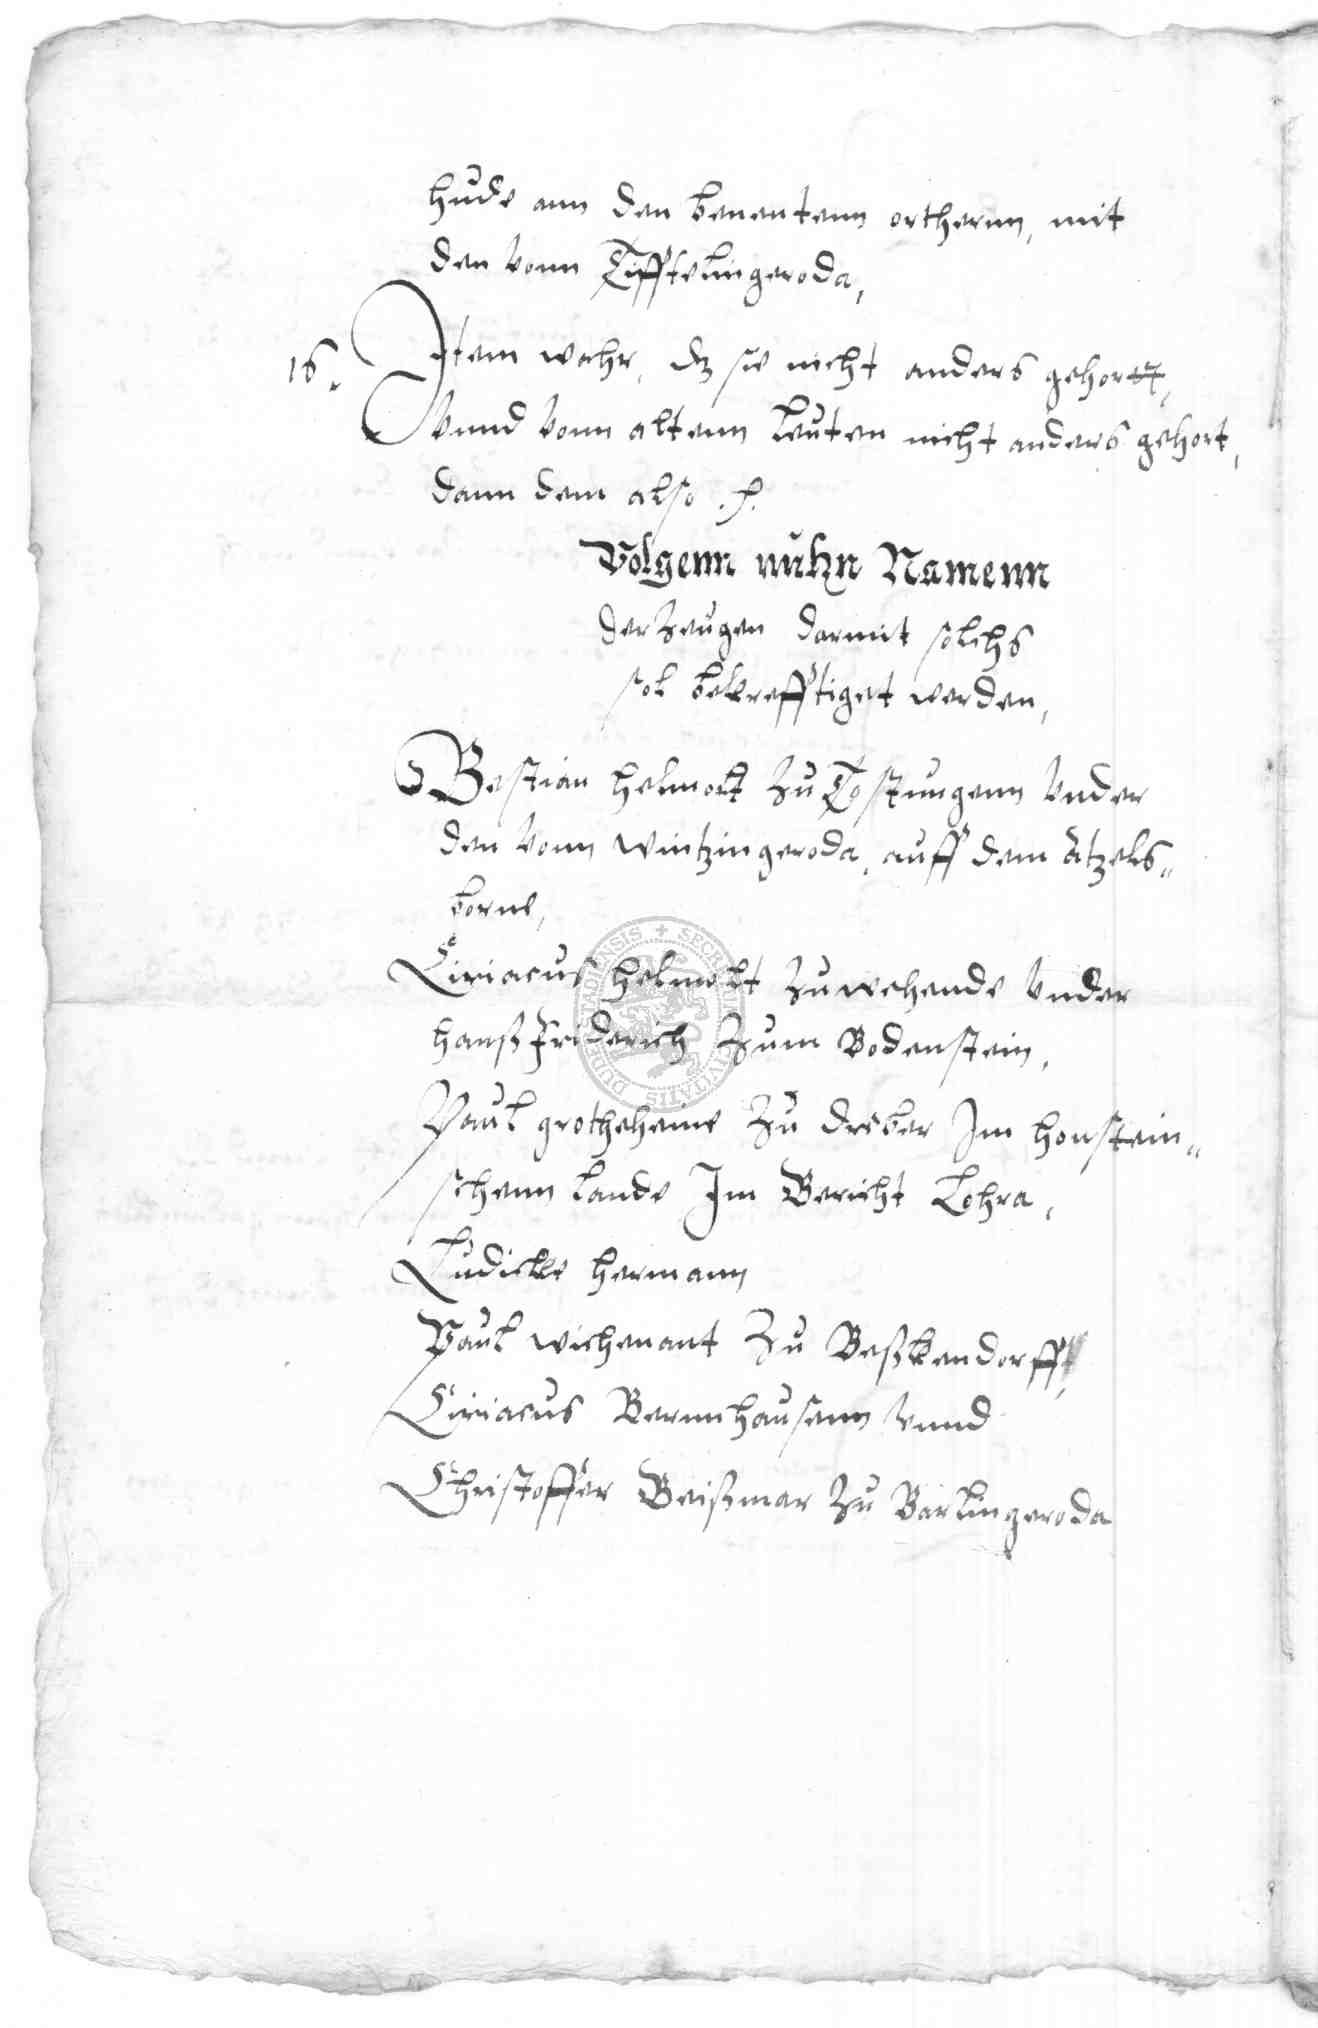 hude ann den benentenn orthernn, mit
den vonn Tiftelingeroda,
16. Item wahr, dz sie nicht anders gehort,
Vnnd vonn altenn Leuten nicht anders gehort,
dann dem also .
Volgenn nuhn Namenn
der Zeugen darmit solchs
sol bekrefftiget werden,
Bastian helmolt Zu Tostungenn Vnder
den vonn wintzingeroda, auff dem Atzels„
borne,
Ciriacus helmolt Zu wehende Vnder
hanß Friderich Zum Bodenstein,
Paul grotheheine Zu dreber Im honstein„
schenn Lande Im Gericht Lohra,
Ludicke hermann
Paul wichenant Zu Beßkendorff,
Ciriacus Bernnhausenn Vnnd
Christoffer Geißmar Zu Barlingeroda
SECRETUM CIVITATIS DUDERSTADIENSIS